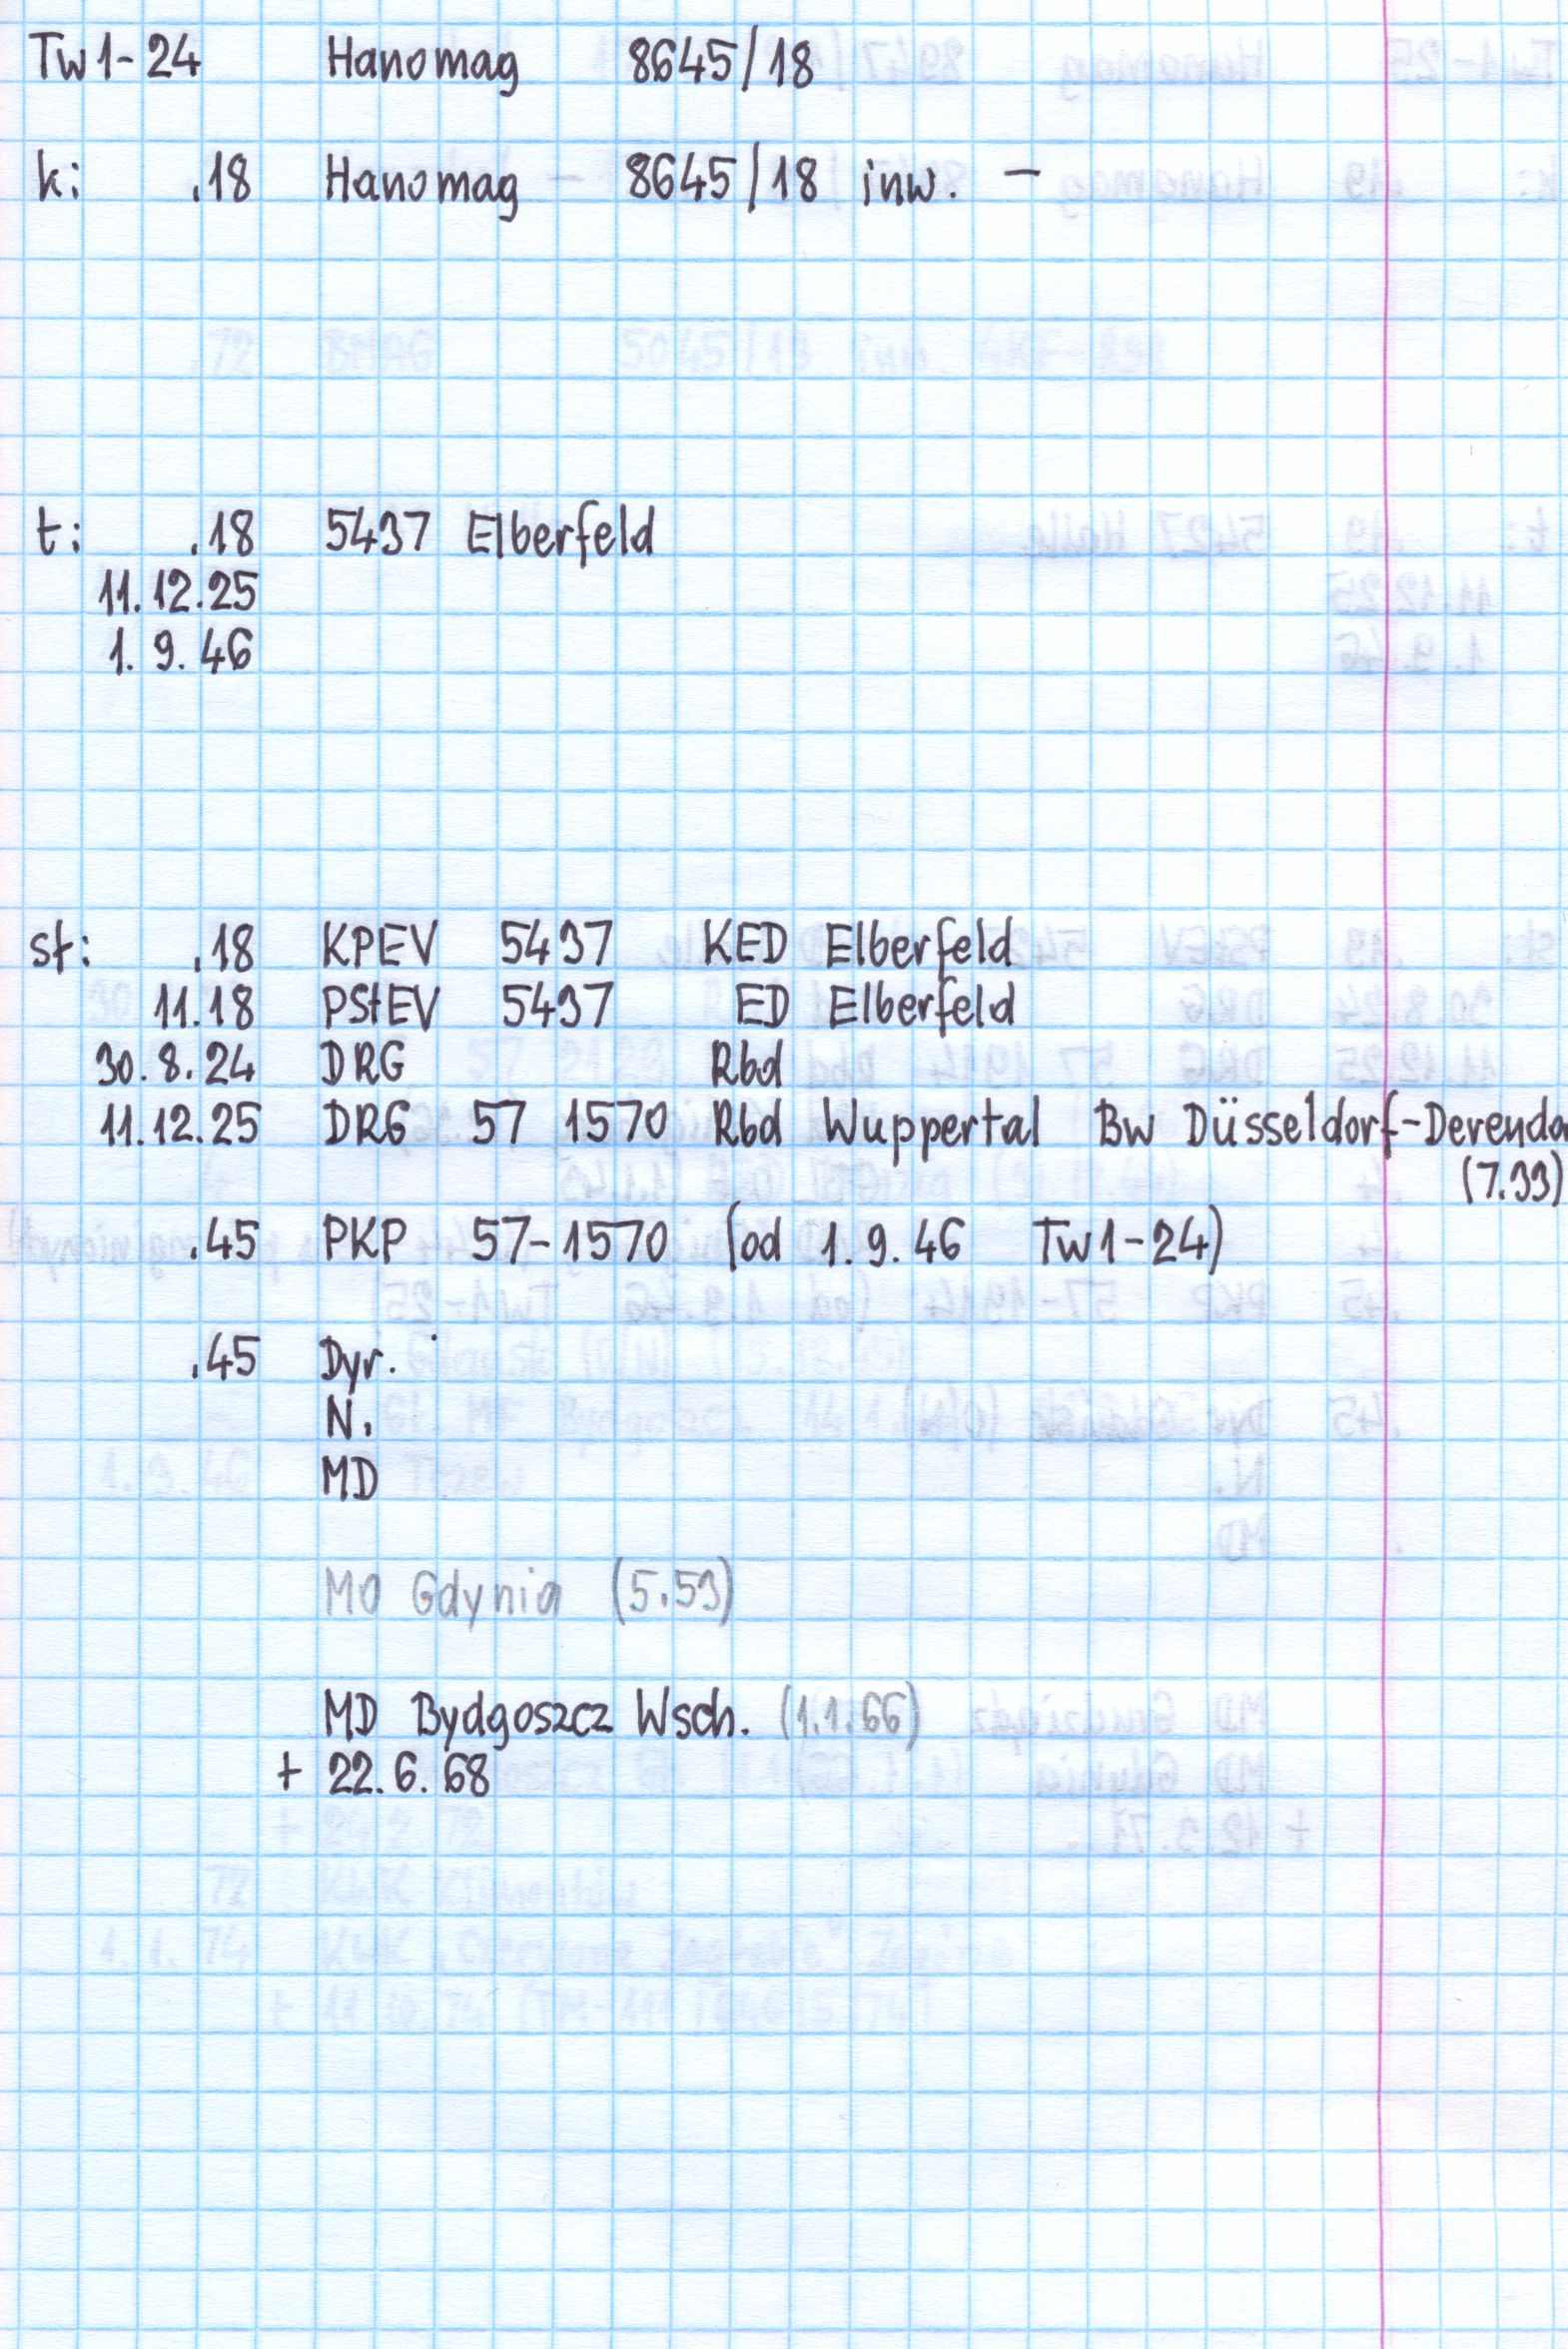 Tw1-24 Hanomag 8645/18
k: .18 Hanomag - 8645/18 inw. -
t: .18 5437 Elberfeld
11.12.25
1.9.46
st: .18 KPEV 5437 KED Elberfeld
11.18 PStEV 5437 ED Elberfeld
30.8.24 DRG Rbd
11.12.25 DRG 57 1570 Rbd Wuppertal Bw Düsseldorf-Derendo
(7.33)
.45 PKP 57-1570 (od 1.9.46 Tw1-24)
.45 Dyr.
N.
MD
MD Gdynia (5.53)
MD Bydgoszcz Wsch. (1.1.66)
+ 22.6.68